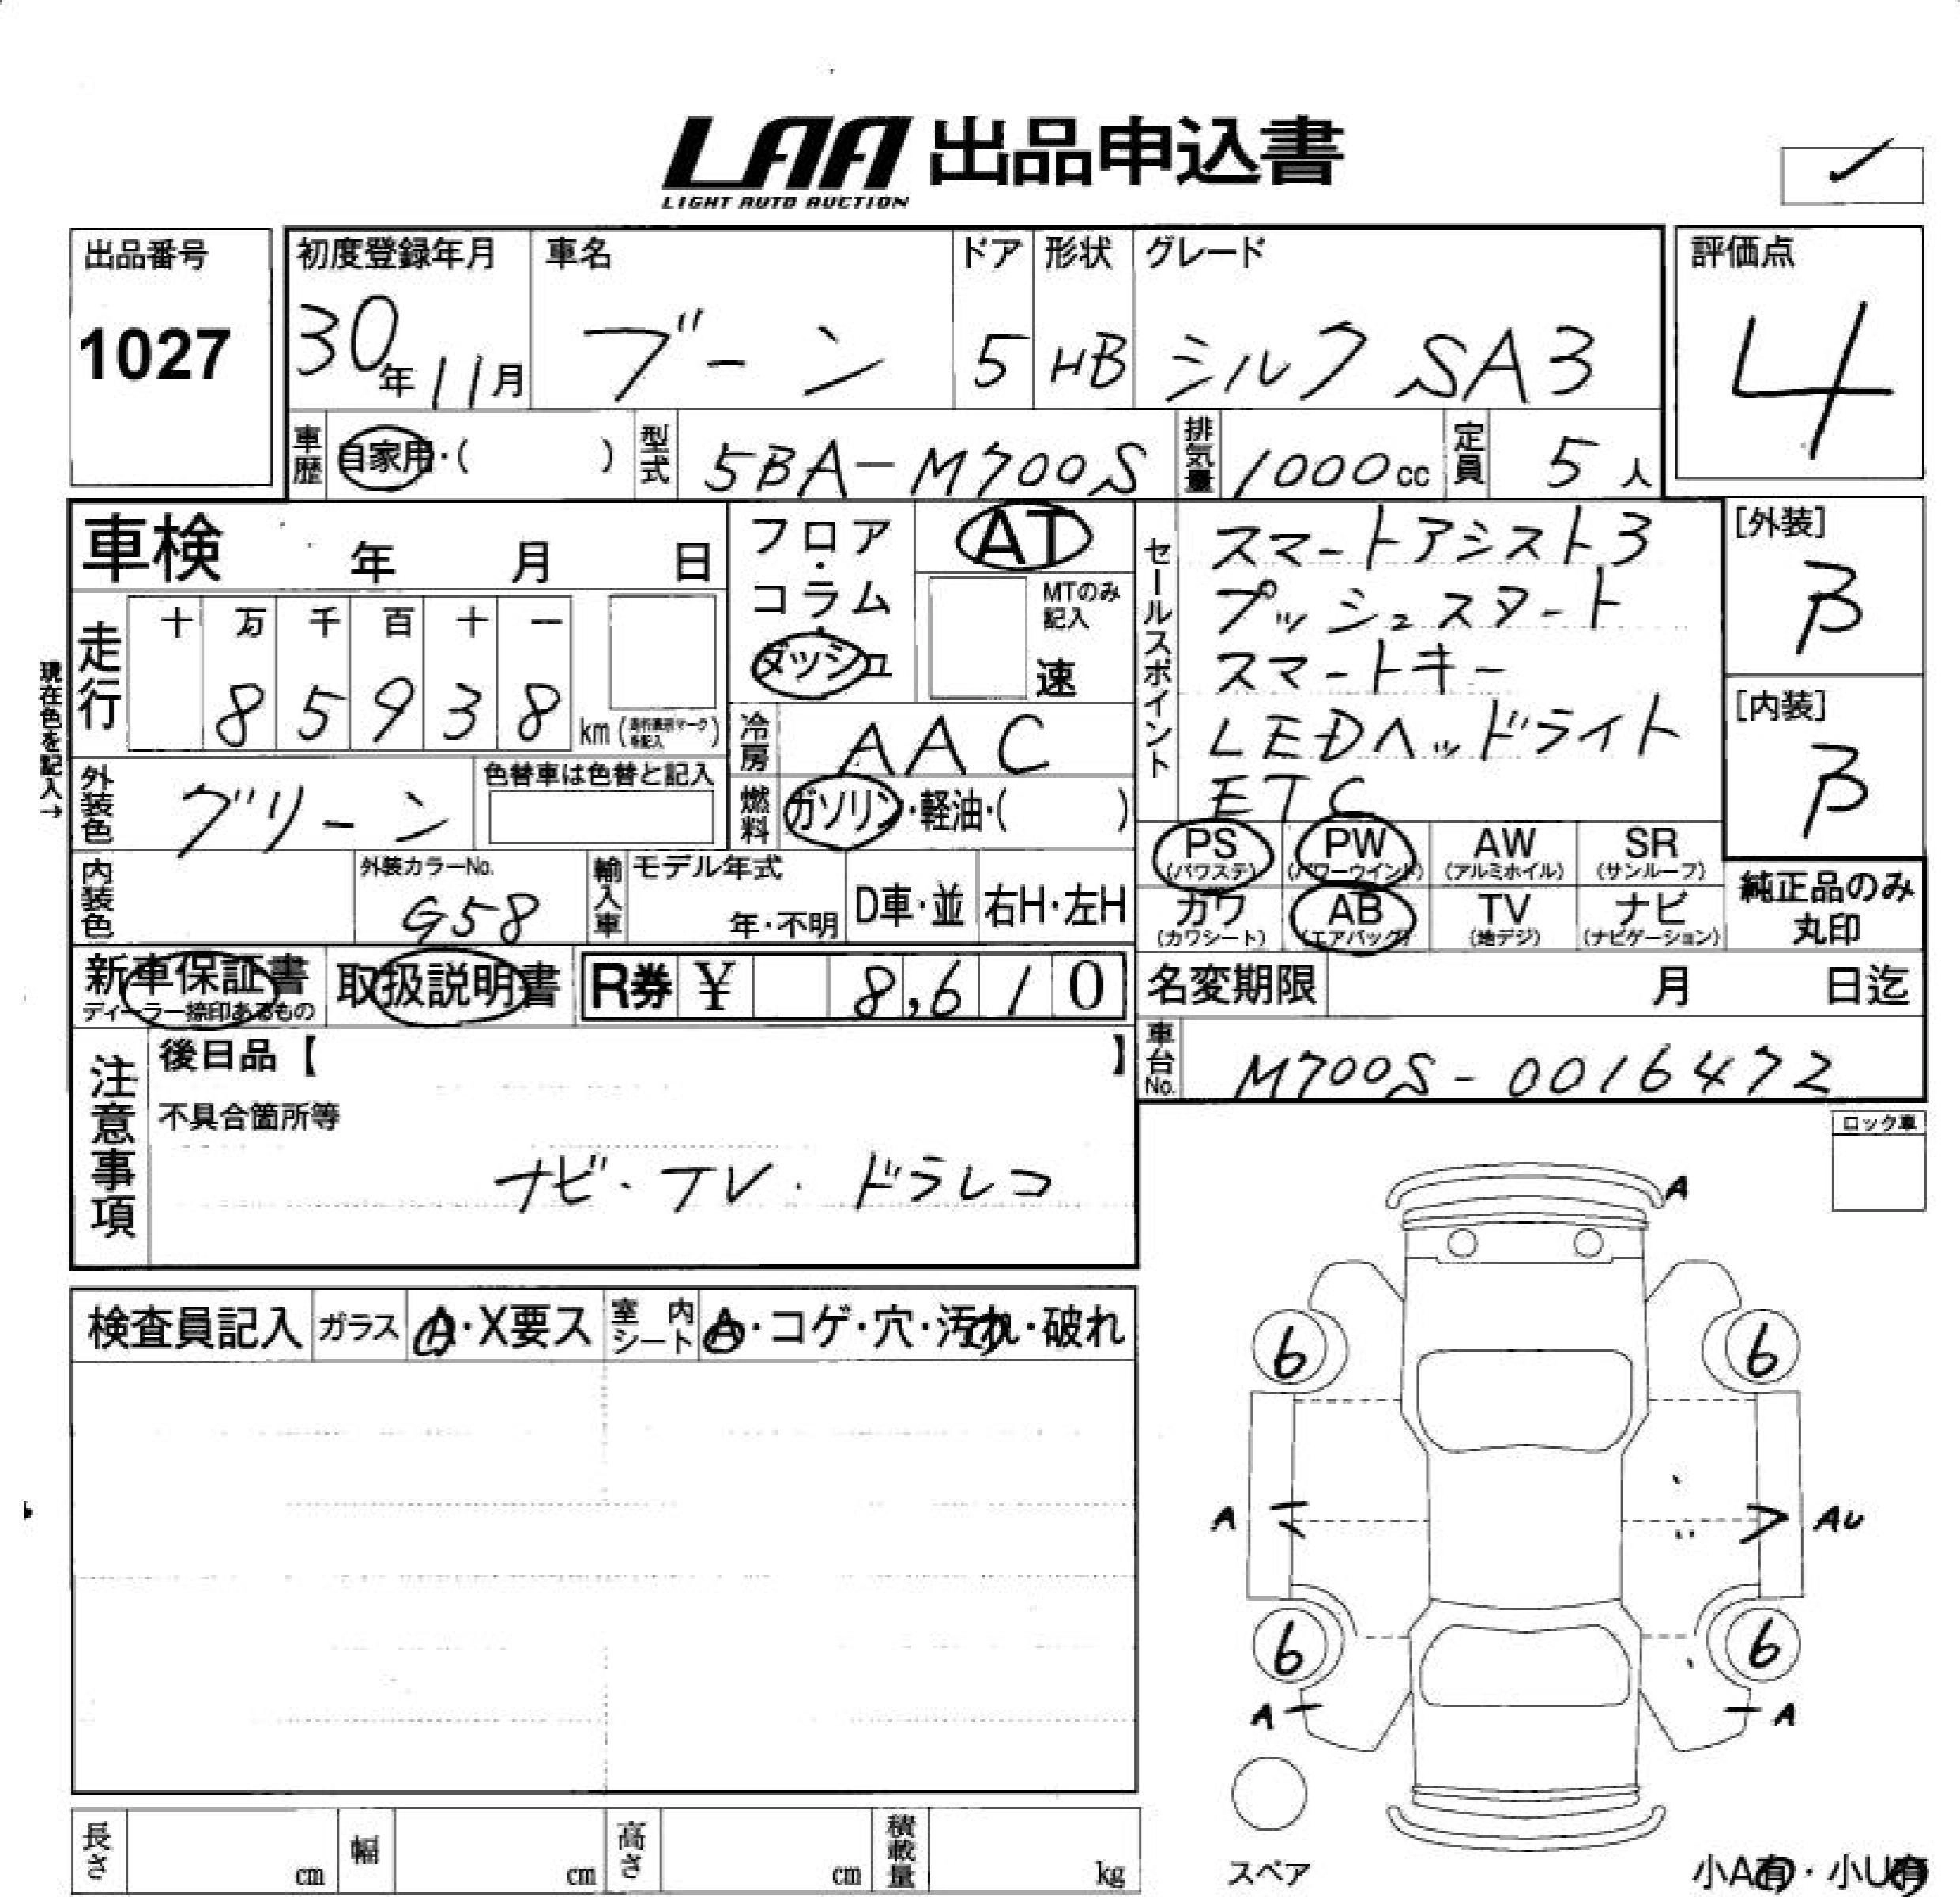 LAA 出品申込書
LIGHT AUTO AUCTION
出品番号
1027
初度登録年月
30年11月
車名
ブーン
ドア
5
形状
HB
グレード
シルク SA3
評価点
4
車歴
自家用・( )
型式
5BA-M700S
排気量
1000cc
定員
5人
車検 年 月 日
フロア・コラム・ダッシュ
AT
MTのみ記入
速
セールスポイント
スマートアシスト3
プッシュスタート
スマートキー
LEDヘッドライト
ETC
[外装]
B
[内装]
B
現在色を記入→
走行
十 万 千 百 十 一
8 5 9 3 8
km
冷房
AAC
燃料
ガソリン・軽油・( )
外装色
グリーン
色替車は色替と記入
内装色
外装カラーNo.
G58
輸入車
モデル年式
年・不明
D車・並
右H・左H
PS
(パワステ)
PW
(パワーウインド)
AW
(アルミホイル)
SR
(サンルーフ)
カワ
(カワシート)
AB
(エアバッグ)
TV
(地デジ)
ナビ
(ナビゲーション)
純正品のみ
丸印
新車保証書
ディーラー捺印あるもの
取扱説明書
R券 ¥ 8,610
名変期限 月 日迄
車台No.
M700S-0016472
注意事項
後日品【 】
不具合箇所等
ナビ・TV・ドラレコ
ロック車
検査員記入
ガラス
A・X要ス
室内シート
A・コゲ・穴・汚れ・破れ
A
6
6
A
AU
6
6
A
A
スペア
小A有・小U有
長さ cm
幅 cm
高さ cm
積載量 kg